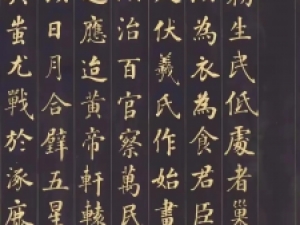 生民低處者巢
為衣為食君臣
伏羲氏作始畫
治百官察萬民
應迨黃帝軒轅
日月合璧五星
蚩尤戰於涿鹿